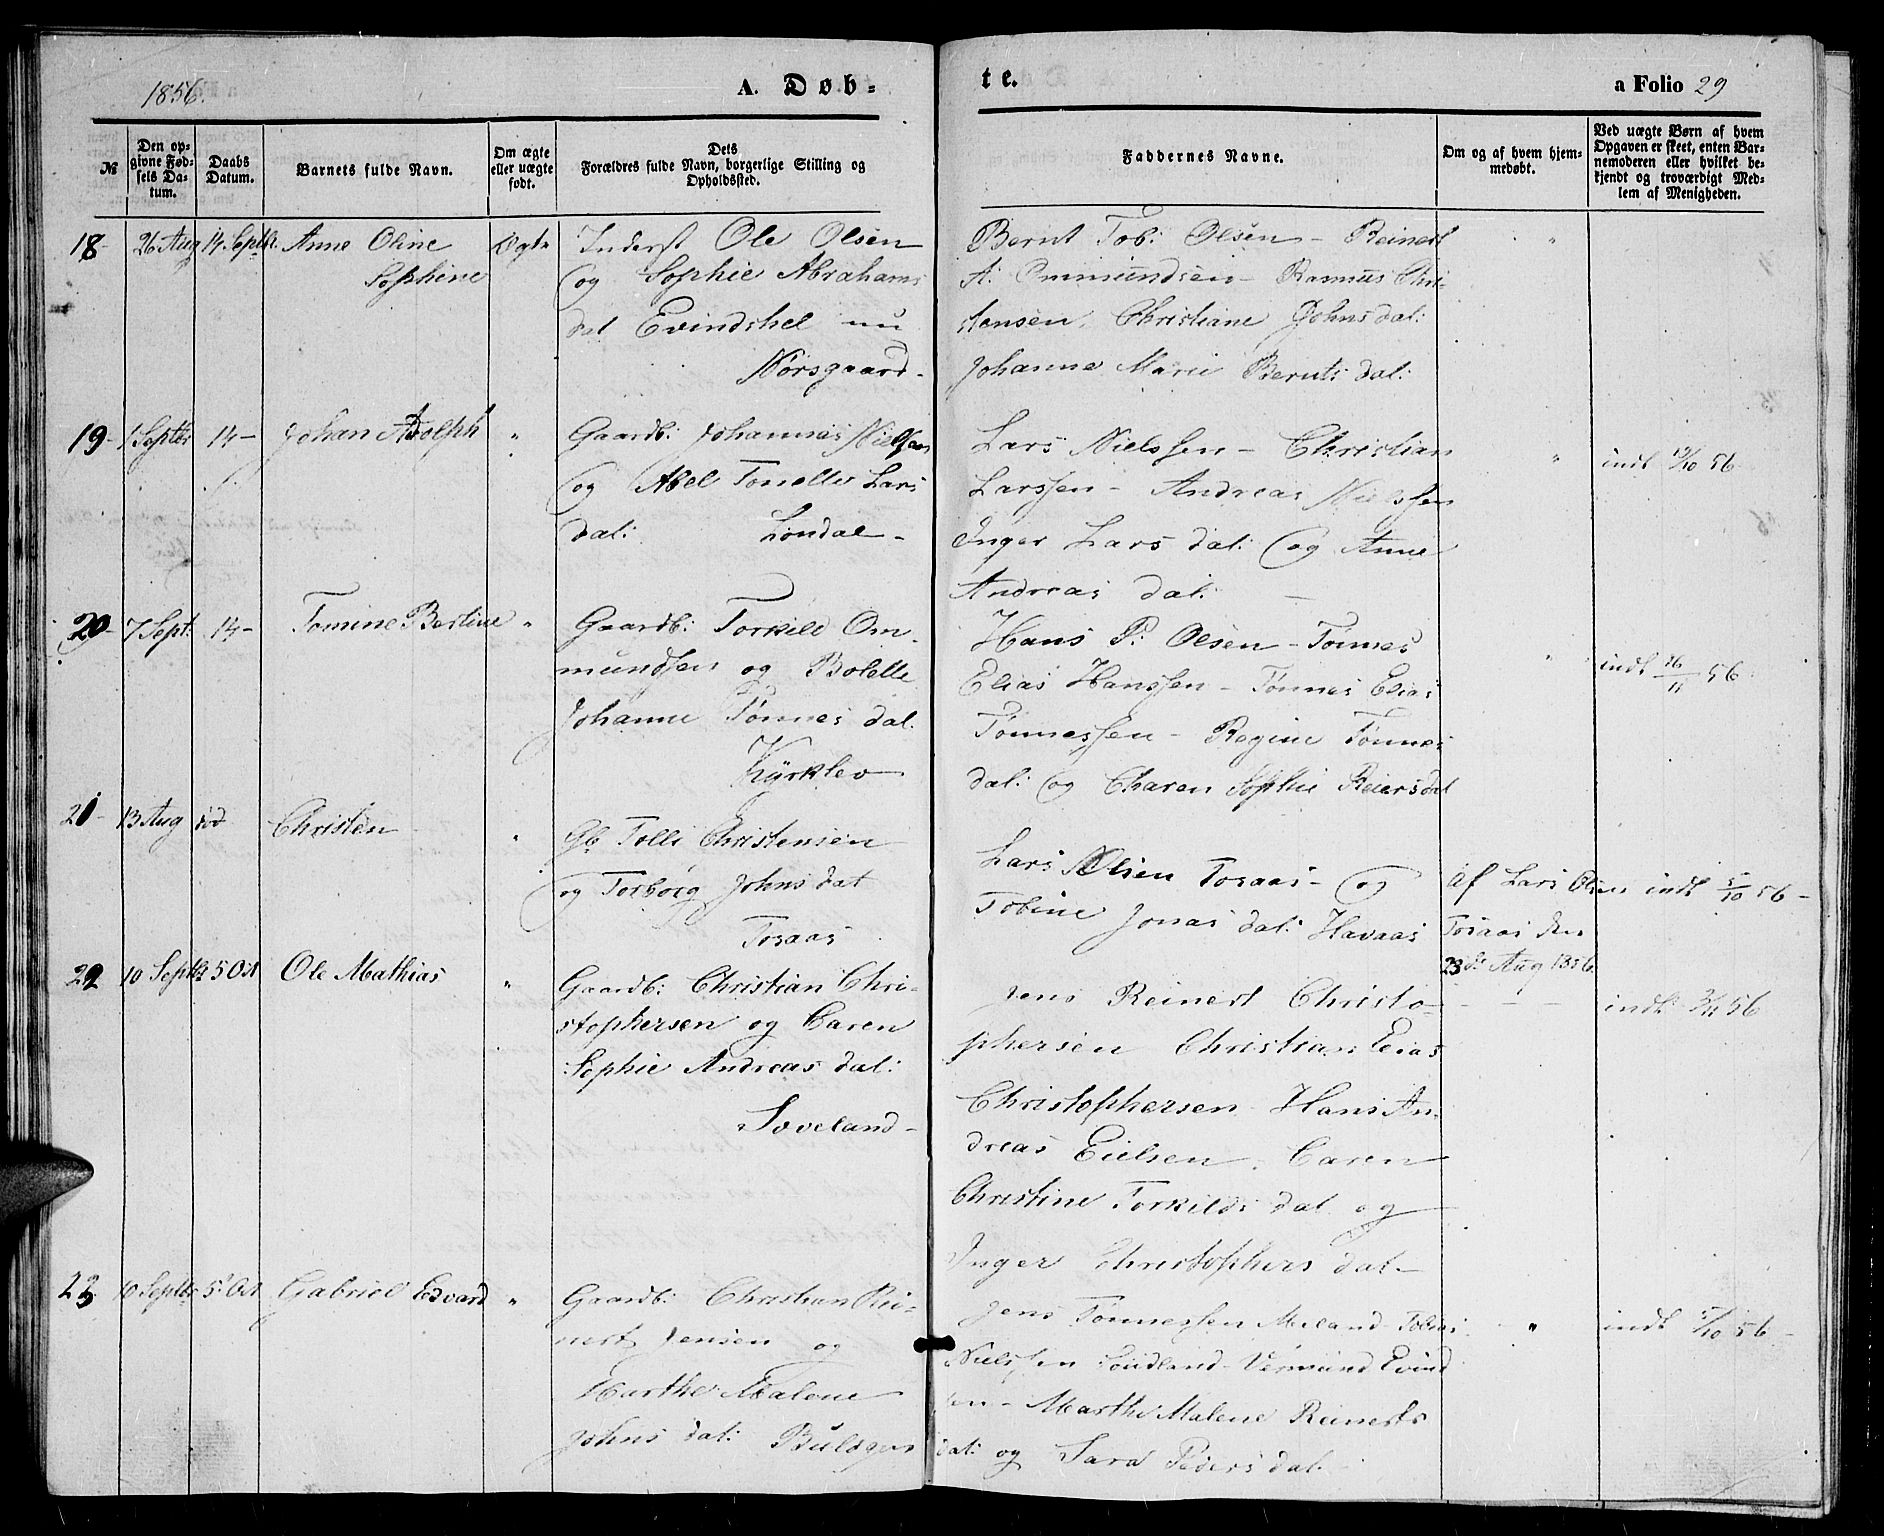 1856.
A. Døb-
te.
a Folio 29
№
Den op-
givne Fød-
sels Da-
tum.
Daabs
Datum.
Barnets fulde Navn.
Om ægte
eller uægte
født.
Dets
Forældres fulde Navn, borgerlige Stilling og
Opholdssted.
Faddernes Navne.
Om og af hvem hjem-
medøbt.
Ved uægte Børn af hvem
Opgaven er skeet, enten Bar-
nemoderen eller hvilket be-
kjendt og troværdigt Med-
lem af Menigheden.
18- 26 Aug 14 Septbr. Anne Oline Ægte Inderst Ole Olsen
Sophine og Sophie Abrahams
dat Evindshel nu
Nörsgaard-
Bernt Tob: Olsen - Reinert "
A: Ommundsen - Rasmus Chri-
stensen. Christiane Johns dal:
Johanne Marie Bernts dal:
19- 1 Septbr 14- Johan Adolph " Gaardb: Johannes Nielsen
og Abel Tonette Lars
dal: Londal-
Lars Nielssen - Christian " indt 19/10 56
Larssen - Andreas Nielssen
Inger Lars dal: og Anne
Andreas dal: -
20- 7 Sept: 14- Tomine Bertine " Gaardb: Torkild Om-
mundsen og Bolette
Johanne Tönnes dal.
Kÿrklev
Hans P: Olsen - Tönnes " indt 16/11 56.
Elias Hanssen - Tönnes Elias
Tönnessen - Regine Tönnes
dal: og Charen Sophie Reiersdal
21- 13 Aug död Christen " Gb Tolli Christensen
og Torborg Johns dat
Tosaas
Lars Olsen Tosaas - og Af Lars Olsen indt 5/10 56-
Tobine Jonas dal: Havaas Tosaas den
23de Aug 1856.
22 10 Septbr 5 Oct Ole Mathias " Gaardb: Christian Chri-
stophersen og Caren
Sophie Andreas dal:
Soveland-
Jens Reinert Christo- - - - indt 2/11 56
phersen Christian Elias
Christophersen - Hans An-
dreas Eielsen. Caren
Christine Torkilds dal og
Inger Christophers dal-
23 10 Septbr 5 Oct Gabriel Edvard " Gaardb: Christian Rei-
nert Jensen og
Marthe Malene
Johns dal:
Jens Tönnessen Meland - Tobias " indt 5/10 56-
Nielssen - Vermund Evind
sen - Marthe Malene Reinerts
dal: og Sara Peders dal. -